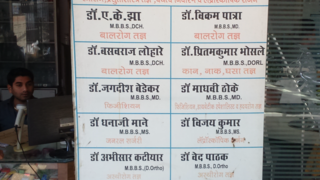 डॉ.ए.के.झा
M.B.B.S.,DCH.
बालरोग तज्ञ
डॉ.विकम पात्रा
M.B.B.S.,MD.
बालरोग तज्ञ
डॉ.बसवराज लोहारे
M.B.B.S.,DCH.
बालरोग तज्ञ
डॉ.प्रितमकुमार भोसले
M.B.B.S.,DORL.
कान, नाक, घसा तज्ञ
डॉ.जगदीश बेडेकर
M.B.B.S.,MD.
डॉ माधवी ठोके
M.B.B.S.,MD.
डॉ धनाजी माने
M.B.B.S.,MS.
डॉ विजय कुमार
M.B.B.S.,MS.
डॉ अभीसार कटीयार
M.B.B.S.,(D.Ortho)
डॉ वेद पाठक
M.B.B.S., D.Ortho